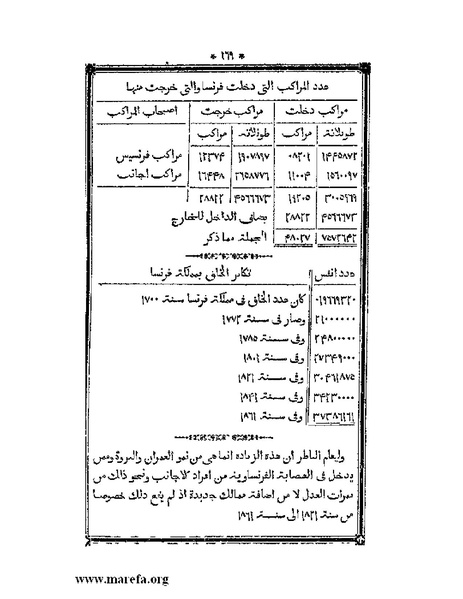 * ١٦٩ *
عدد المراكب التى دخلت فرنسا والتى خرجت منها
مراكب دخلت مراكب خرجت اصحاب المراكب
طونلاتة مراكب طونلاتة مراكب
١٤٤٥٨٧٢ ٠٨٢٠١ ١٩٠٧٨٩٧ ١٢٣٧٤ مراكب فرنسيس
١٥٦٠٠٩٧ ١١٠٠٤ ٢٦٥٨٧٧٦ ١٦٤٤٨ مراكب اجانب
٣٠٠٥٩٦٩ ١٩٢٠٥ ٤٥٦٦٦٧٣ ٢٨٨٢٢
٤٥٦٦٦٧٣ ٢٨٨٢٢ يضاف الداخل للخارج
٧٥٧٢٦٤٢ ٤٨٠٢٧ الجملة مما ذكر
عدد انفس تكاثر الخلق بمملكة فرنسا
٠١٩٦٦٩٣٢٠ كان عدد الخلق فى مملكة فرنسا سنة ١٧٠٠
٢١٠٠٠٠٠٠ وصار فى سنة ١٧٧٢
٢٤٨٠٠٠٠٠ وفى سنة ١٧٨٥
٢٧٣٤٩٠٠٠ وفى سنة ١٨٠١
٣٠٤٦١٨٧٥ وفى سنة ١٨٢١
٣٤٢٣٠٠٠٠ وفى سنة ١٨٤١
٣٧٣٨٦١٦١ وفى سنة ١٨٦١
وليعلم الناظر ان هذه الزيادة انما هى من نمو العمران والثروة وممن
يدخل فى العصابة الفرنساوية من افراد الاجانب ونحو ذلك من
ثمرات العدل لا من اضافة ممالك جديدة اذ لم يقع ذلك خصوصا
من سنة ١٨٢١ الى سنة ١٨٦١
www.marefa.org